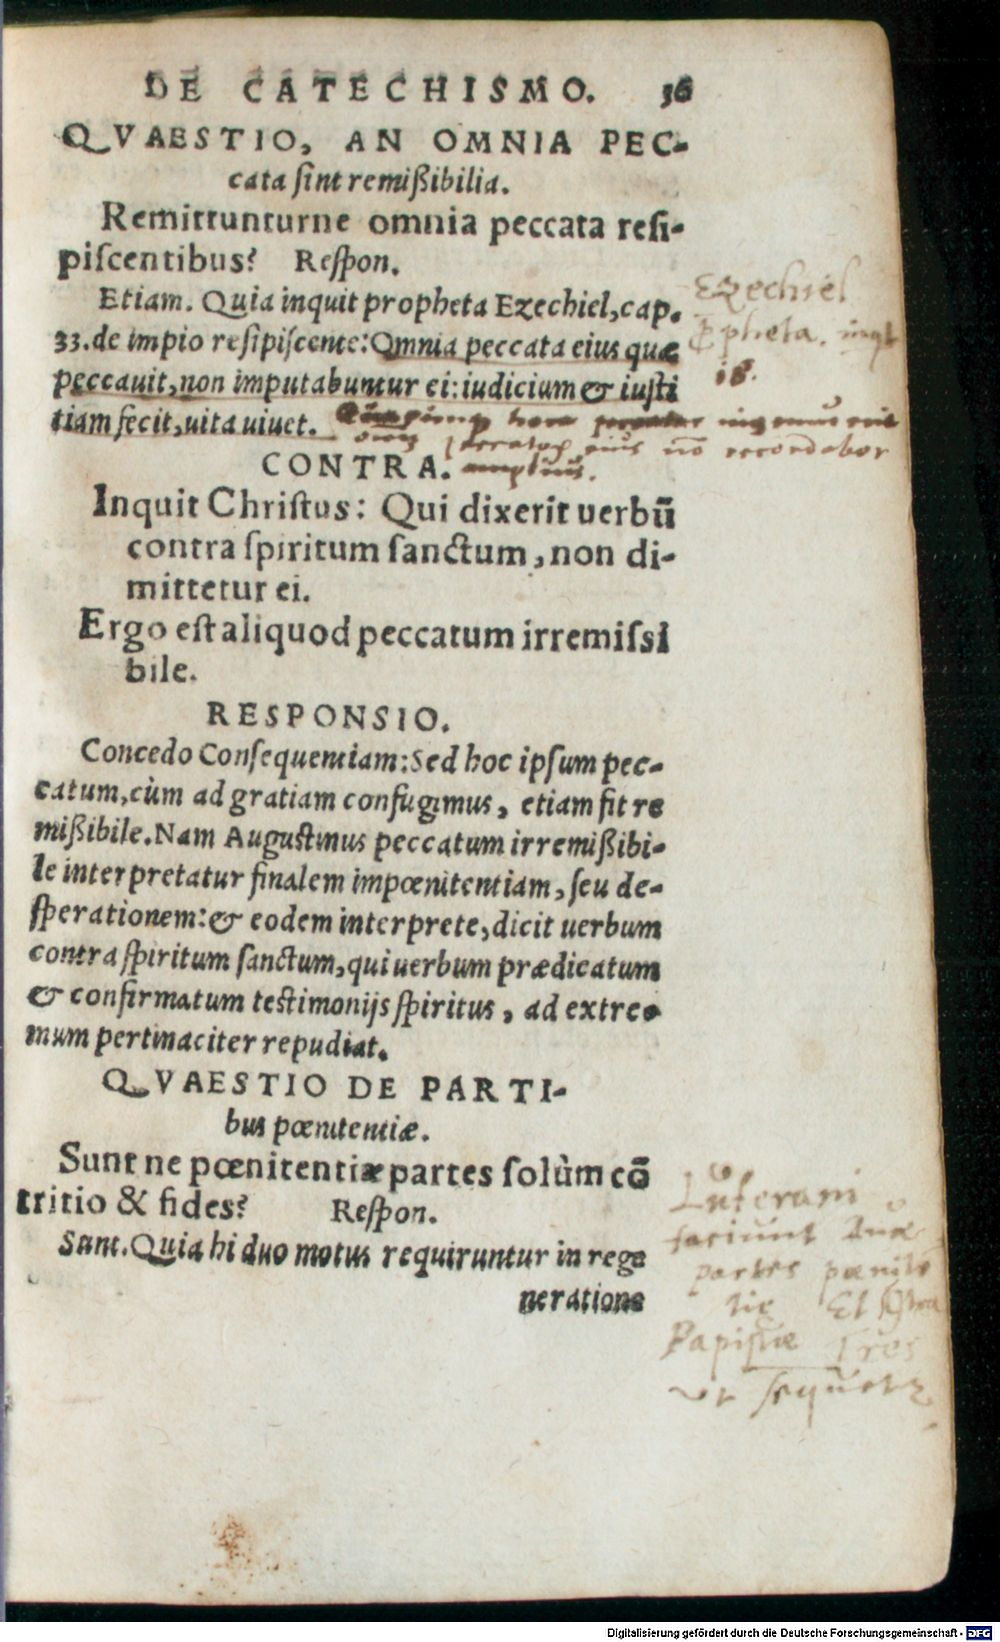 DE CATECHISMO. 36
QVAESTIO, AN OMNIA PEC-
cata ſint remißibilia.
Remittunturne omnia peccata reſi-
piſcentibus? Reſpon.
Etiam. Quia inquit propheta Ezechiel, cap.
33. de impio reſipiſcente: Omnia peccata eius quæ
peccauit, non imputabuntur ei: iudicium & iuſti
tiam fecit, uita uiuet.
Ezechiel
ꝓpheta. inqt
18.
peccatoꝝ eius nō recordabor
amplius.
CONTRA.
Inquit Chriſtus: Qui dixerit uerbū
contra ſpiritum ſanctum, non di-
mittetur ei.
Ergo eſt aliquod peccatum irremiſsi
bile.
RESPONSIO.
Concedo Conſequentiam: Sed hoc ipſum pec-
catum, cùm ad gratiam confugimus, etiam fit re
mißibile. Nam Auguſtinus peccatum irremißibi-
le interpretatur finalem impœnitentiam, ſeu de-
ſperationem: & eodem interprete, dicit uerbum
contra ſpiritum ſanctum, qui uerbum prædicatum
& confirmatum teſtimonijs ſpiritus, ad extre-
mum pertinaciter repudiat.
QVAESTIO DE PARTI-
bus pœnitentiæ.
Sunt ne pœnitentiæ partes ſolùm cō
tritio & fides? Reſpon.
Sunt. Quia hi duo motus requiruntur in rege
neratione
Luterani
faciunt duas
partes pœnitē
tiæ Et
Papiſtæ Tres
vt ſequetr
Digitalisierung gefördert durch die Deutsche Forschungsgemeinschaft - DFG